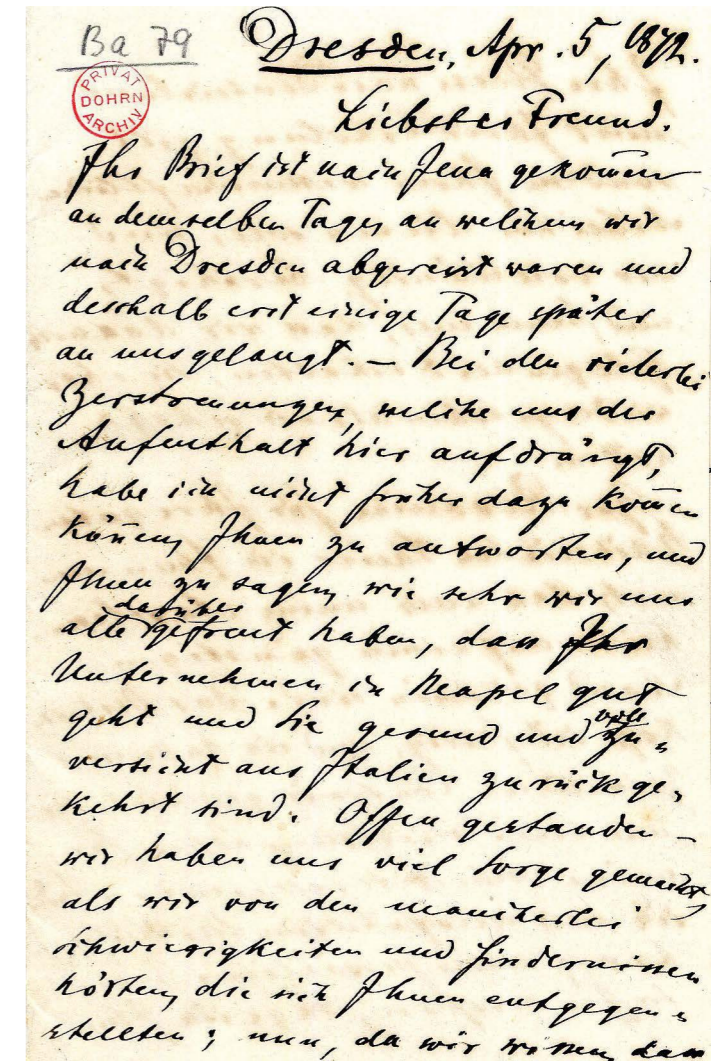 Ba 79
Dresden, Apr. 5, 1872.
PRIVAT
DOHRN
ARCHIV
Liebster Freund.
Ihr Brief ist nach Jena gekom̅en
an demselben Tage, an welchem wir
nach Dresden abgereist waren und
deshalb erst einige Tage später
an uns gelangt. — Bei den vielerlei
Zerstreuungen, welche uns der
Aufenthalt hier aufdrängt,
habe ich nicht früher dazu kom̅en
kön̅en, Ihnen zu antworten, und
Ihnen zu sagen, wie sehr wir uns
alle darüber gefreut haben, dass Ihr
Unternehmen in Neapel gut
geht und Sie gesund und voll Zu-
versicht aus Italien zurückge-
kehrt sind. Offen gestanden –
wir haben uns viel Sorge gemacht,
als wir von den mancherlei
Schwierigkeiten und Hindernissen
hörten, die sich Ihnen entgegen-
stellten; nun, da wir wissen, dass